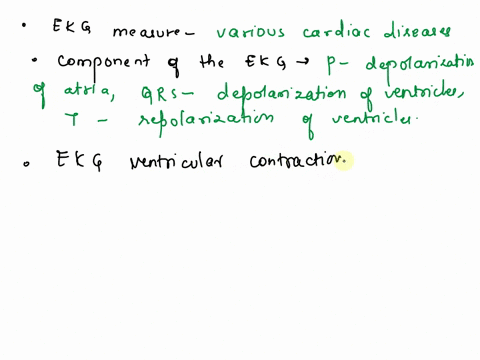 • EKG measure - various cardiac diseases
• component of the EKG → P - depolarization
of atria, QRS - depolarization of ventricles,
T - repolarization of ventricles.
• EKG ventricular contraction.